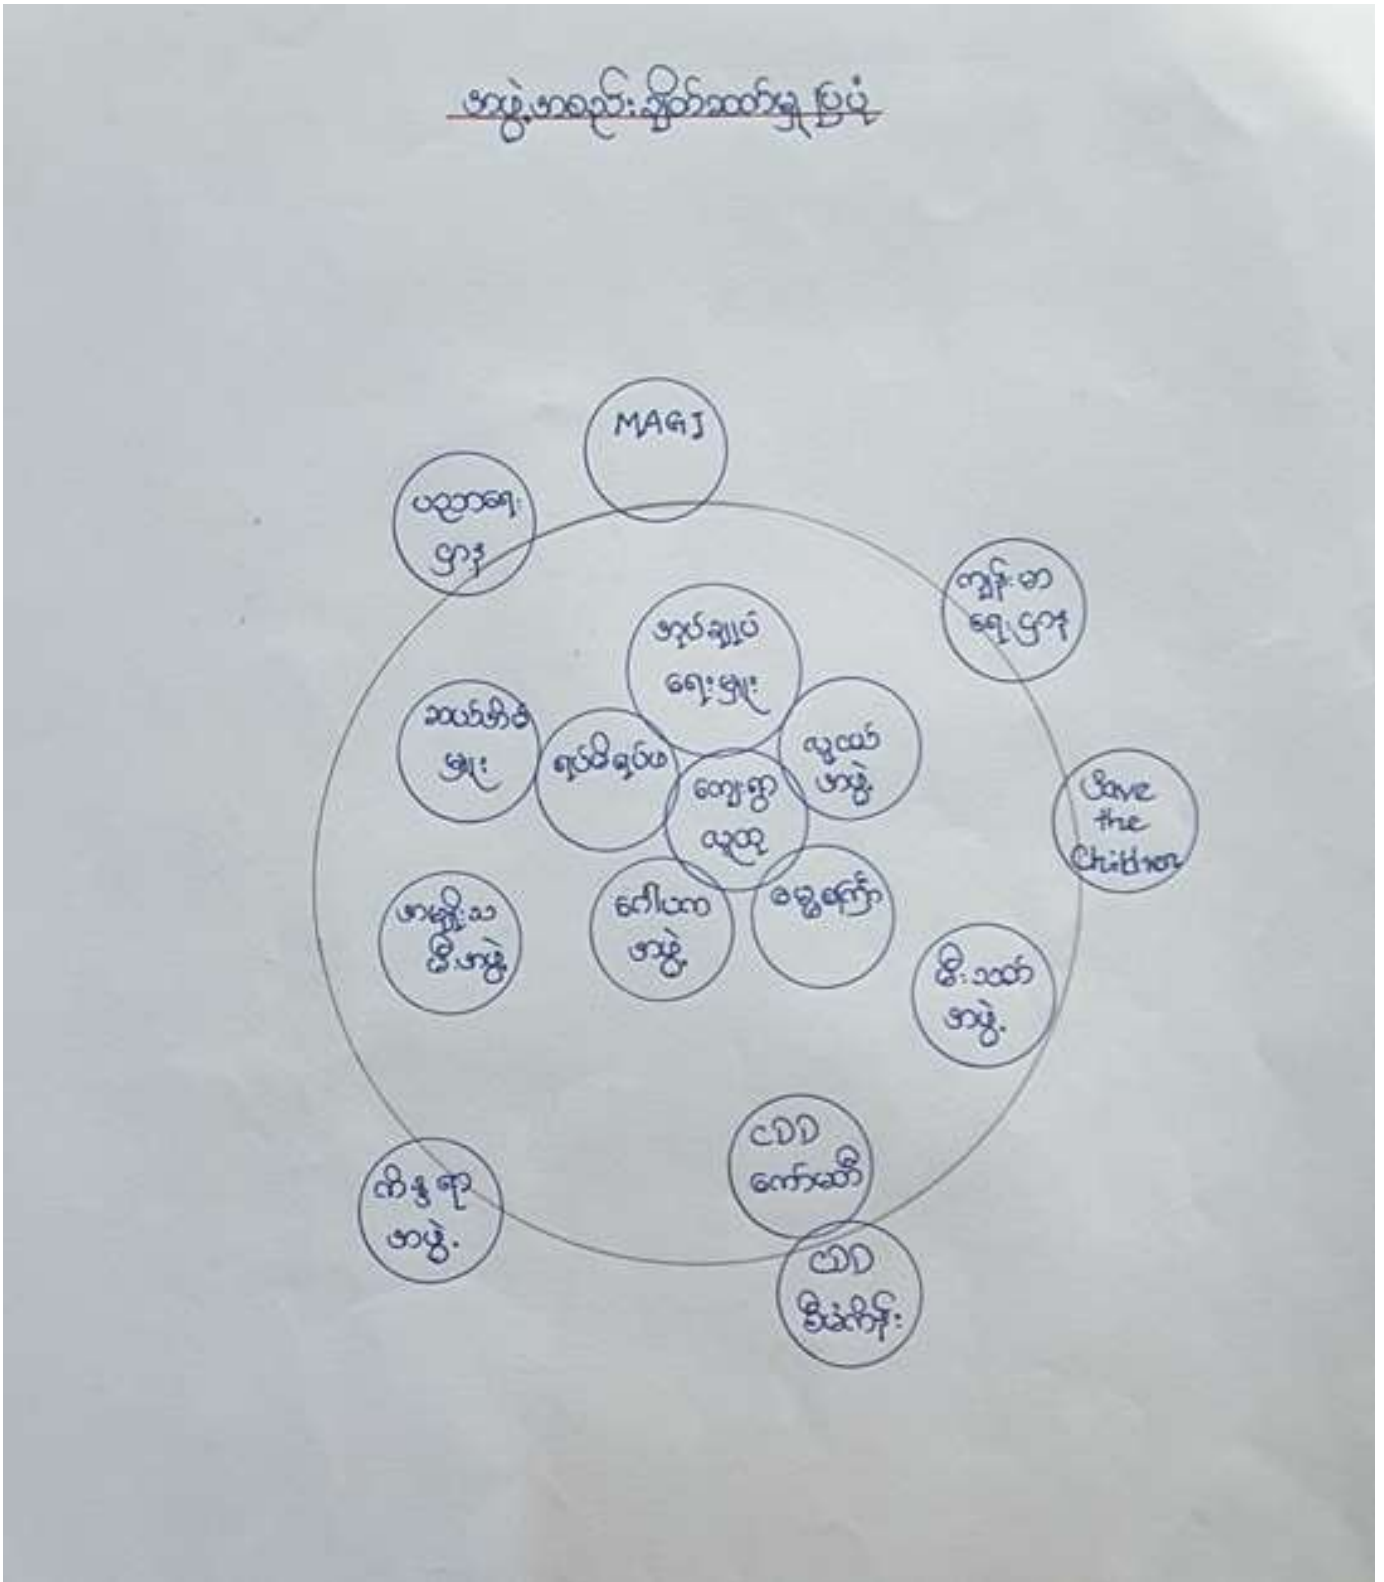 အဖွဲ့အစည်းချိတ်ဆက်မှုပြပုံ
MAGI
ပညာရေး
ဌာန
ကျန်းမာ
ရေးဌာန
အုပ်ချုပ်
ရေးမှူး
ဆယ်အိမ်
မှူး
ရပ်မိရပ်ဖ
လူငယ်
အဖွဲ့
ကျေးရွာ
လူထု
Save
the
Children
အမျိုးသ
မီးအဖွဲ့
ဂေါပက
အဖွဲ့
မီးသတ်
အဖွဲ့
CDD
ကော်မတီ
ကိန္နရာ
အဖွဲ့
CDD
စီမံကိန်း